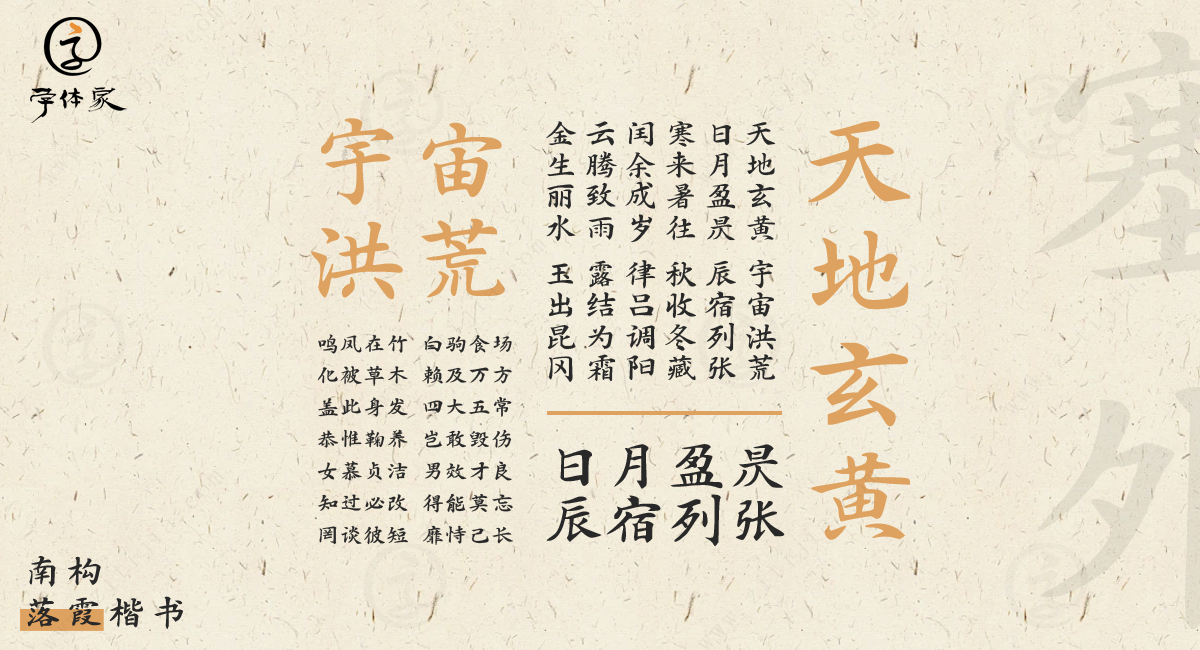 字体家
天地玄黄
天地玄黄 宇宙洪荒
日月盈昃 辰宿列张
寒来暑往 秋收冬藏
闰余成岁 律吕调阳
云腾致雨 露结为霜
金生丽水 玉出昆冈
日月盈昃
辰宿列张
宇宙
洪荒
鸣凤在竹 白驹食场
化被草木 赖及万方
盖此身发 四大五常
恭惟鞠养 岂敢毁伤
女慕贞洁 男效才良
知过必改 得能莫忘
罔谈彼短 靡恃己长
塞外
南构
落霞楷书